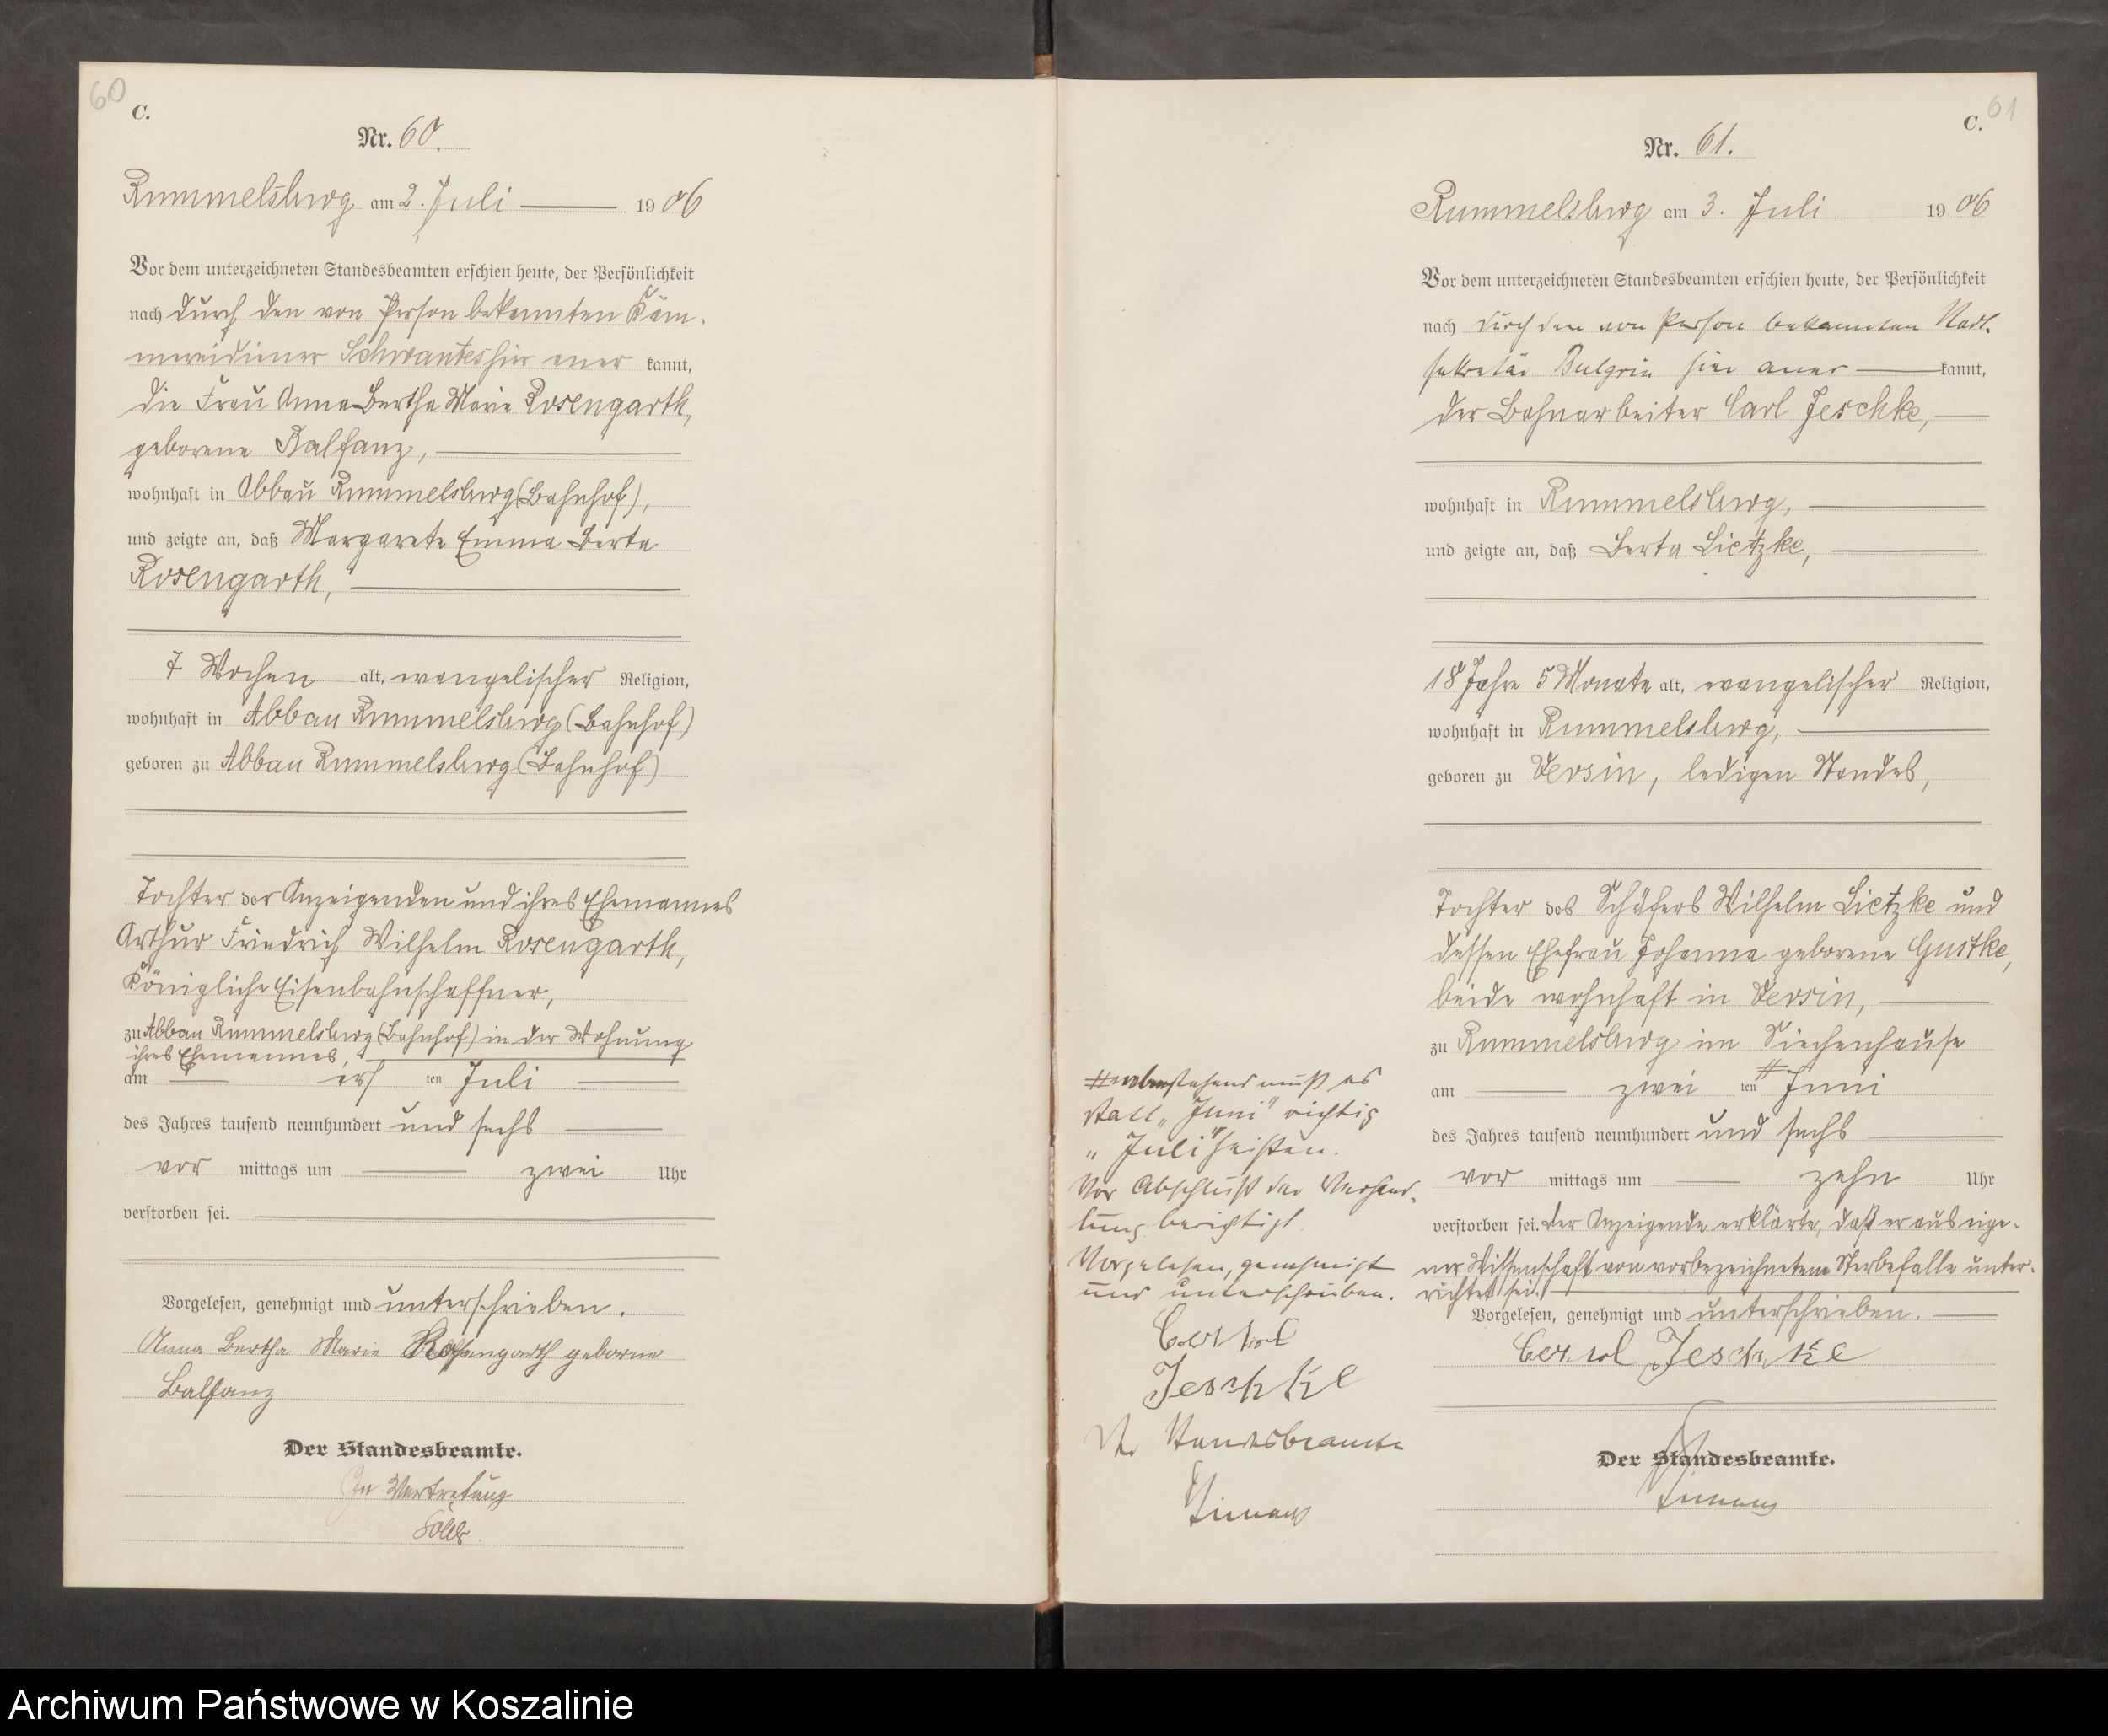 60
C.
Nr. 60.
Rummelsburg am 2. Juli 1906
Vor dem unterzeichneten Standesbeamten erschien heute, der Persönlichkeit
nach durch den von Person bekannten Käm-
mereidiener Schwantes hier aner kannt,
die Frau Anna Bertha Marie Rosengarth,
geborene Balfanz,
wohnhaft in Abbau Rummelsburg (Bahnhof),
und zeigte an, daß Margarete Emma Berta
Rosengarth,
7 Wochen alt, evangelischer Religion,
wohnhaft in Abbau Rummelsburg (Bahnhof)
geboren zu Abbau Rummelsburg (Bahnhof)
Tochter der Anzeigenden und ihres Ehemannes
Arthur Friedrich Wilhelm Rosengarth,
Königliche Eisenbahnschaffner,
zu Abbau Rummelsburg (Bahnhof) in der Wohnung
ihres Ehemannes,
am ersten Juli
des Jahres tausend neunhundert und sechs
vor mittags um zwei Uhr
verstorben sei.
Vorgelesen, genehmigt und unterschrieben.
Anna Bertha Marie Rosengarth geborne
Balfanz
Der Standesbeamte.
In Vertretung
61
C.
Nr. 61.
Rummelsburg am 3. Juli 1906
Vor dem unterzeichneten Standesbeamten erschien heute, der Persönlichkeit
nach durch den von Person bekannten Stadt-
sekretär Bulgrin hier aner kannt,
der Bahnarbeiter Carl Jeschke,
wohnhaft in Rummelsburg,
und zeigte an, daß Berta Lietzke,
18 Jahre 5 Monate alt, evangelischer Religion,
wohnhaft in Rummelsburg,
geboren zu Versin, ledigen Standes,
Tochter des Schäfers Wilhelm Lietzke und
dessen Ehefrau Johanna geborene Gustke,
beide wohnhaft in Versin,
zu Rummelsburg im Siechenhause
am zweiten # Juni
des Jahres tausend neunhundert und sechs
vor mittags um zehn Uhr
verstorben sei. Der Anzeigende erklärte, daß er aus eige-
ner Wissenschaft von vorbezeichnetem Sterbefalle unter-
richtet sei.
Vorgelesen, genehmigt und unterschrieben.
Carl Jeschke
Der Standesbeamte.
# nebenstehend muß es
statt „Juni" richtig
„Juli" heißen.
Vor Abschluß der Verhand-
lung berichtigt.
Vorgelesen, genehmigt
und unterschrieben.
Carl
Jeschke
Der Standesbeamte
Archiwum Państwowe w Koszalinie